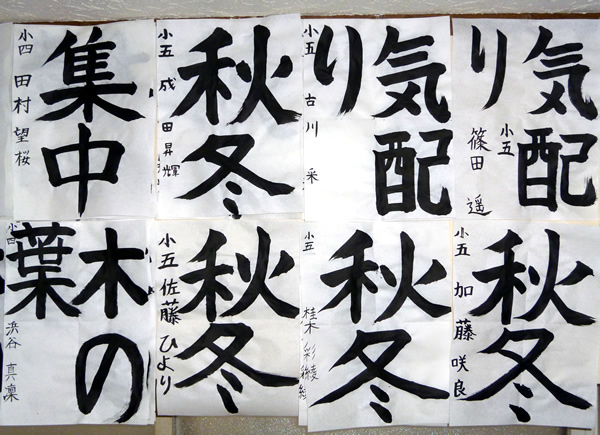 集中
小四 田村望桜
秋冬
小五 成田昇輝
気配
り
小五 古川 采
気配
り
小五
篠田 遥
木の
葉
小四
浜谷 真凜
秋冬
小五 佐藤ひより
秋冬
小五
秋冬
小五 加藤咲良